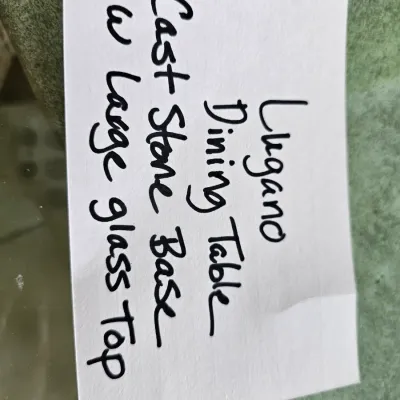 Lugano
Dining Table
Cast Stone Base
w Large glass Top